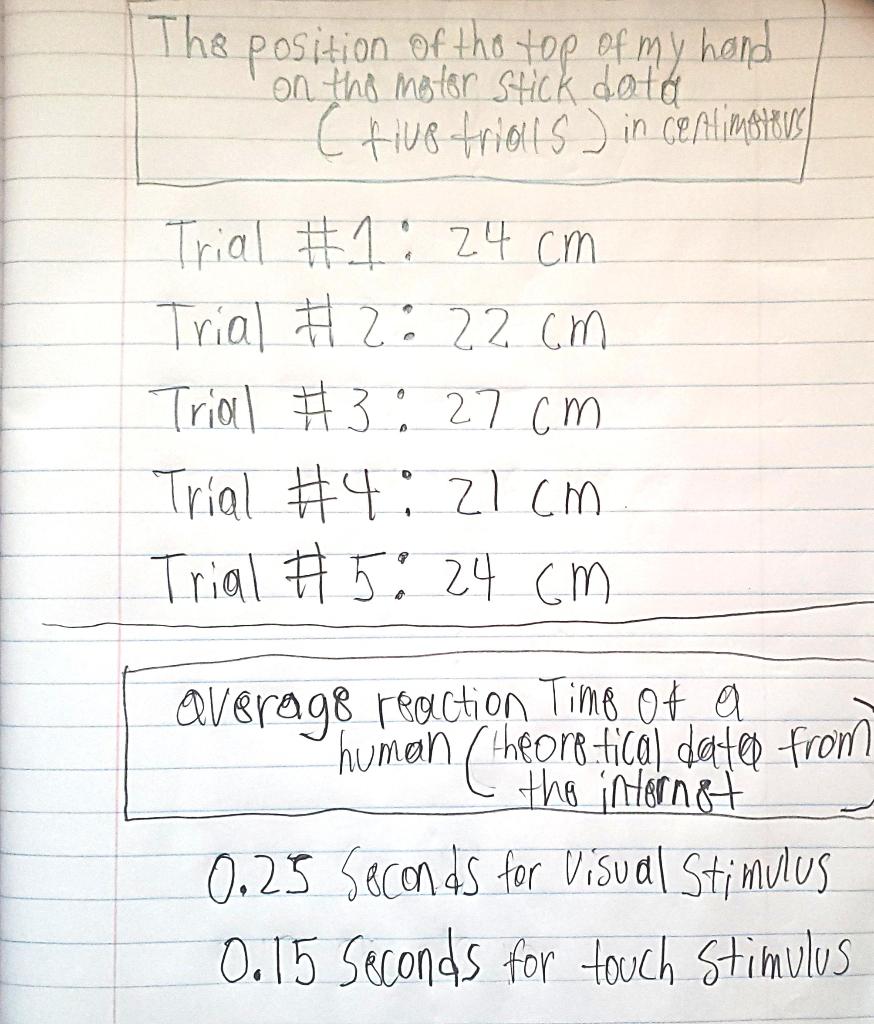 The position of the top of my hand
on the meter stick data
(five trials) in centimeters
Trial #1: 24 cm
Trial #2: 22 cm
Trial #3: 27 cm
Trial #4: 21 cm
Trial #5: 24 cm
average reaction Time of a
human (theoretical data from
the internet)
0.25 Seconds for visual stimulus
0.15 Seconds for touch stimulus